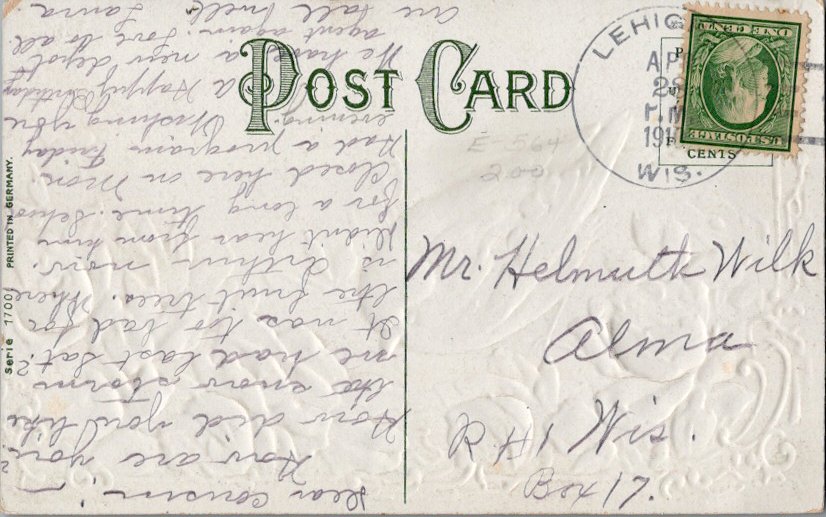 POST CARD
LEHIGH
AP
28
PM
191
WIS.
CENTS
U.S. POSTAGE
ONE CENT
E-564
200
Mr. Helmuth Wilk
Alma
R #1 Wis.
Box 17.
Serie 1700 PRINTED IN GERMANY.
Dear Cousin:-
How are you?
How did you like
the snow storm
we had last Sat?
It was to bad for
the fruit trees. Where
is Arthur now.
Didn't hear from him
for a long time. School
closed here on Mon.
Had a program Friday
evening. Wishing you
a Happy Birthday
We have a new depot
agent again. Love to all
are all well. Laura